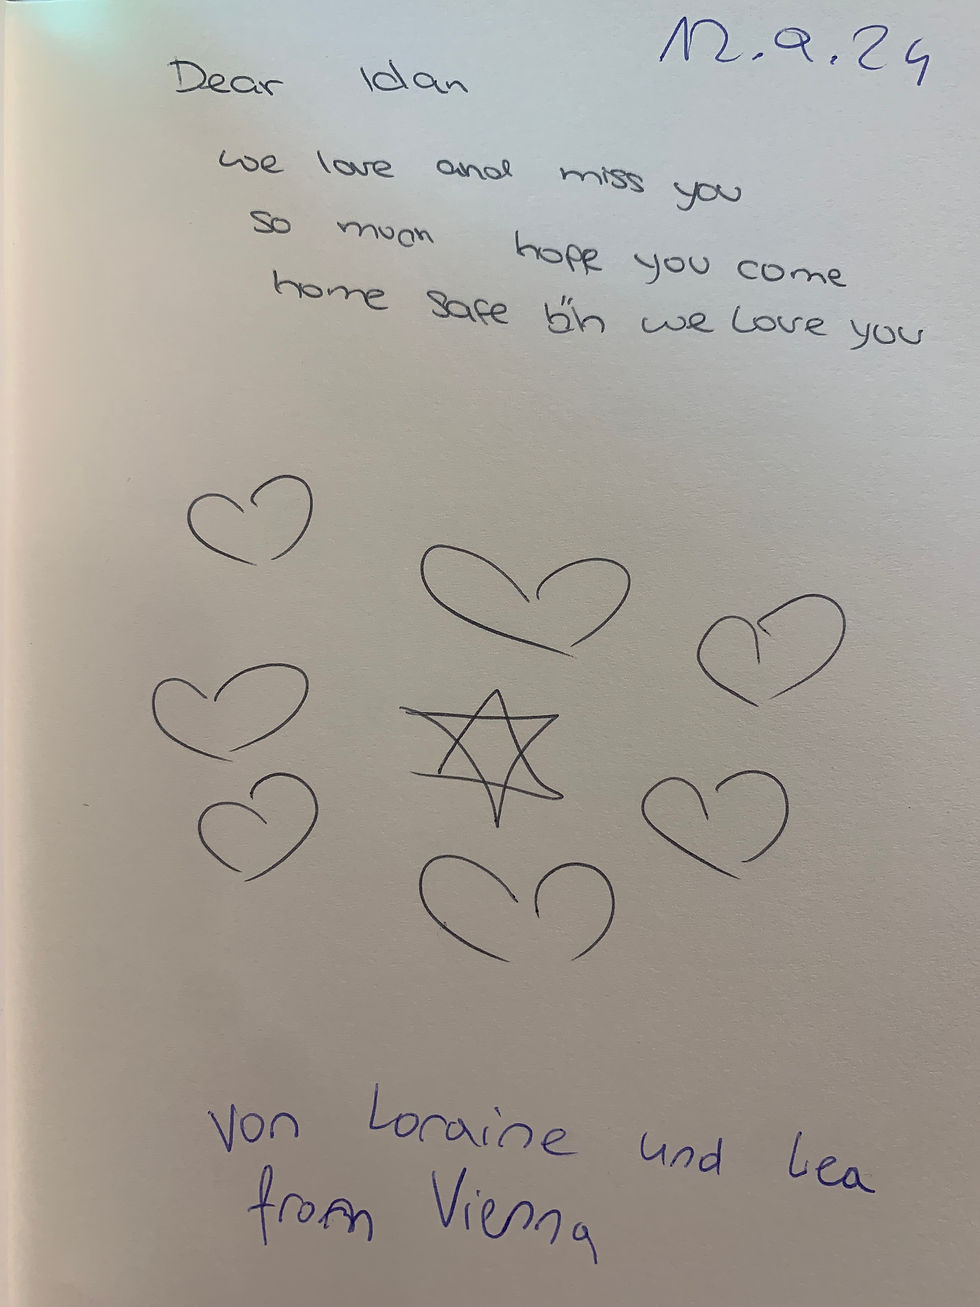 12.9.24
Dear Idan
we love and miss you
so much hope you come
home safe b"h we love you
von Loraine und Lea
from Vienna